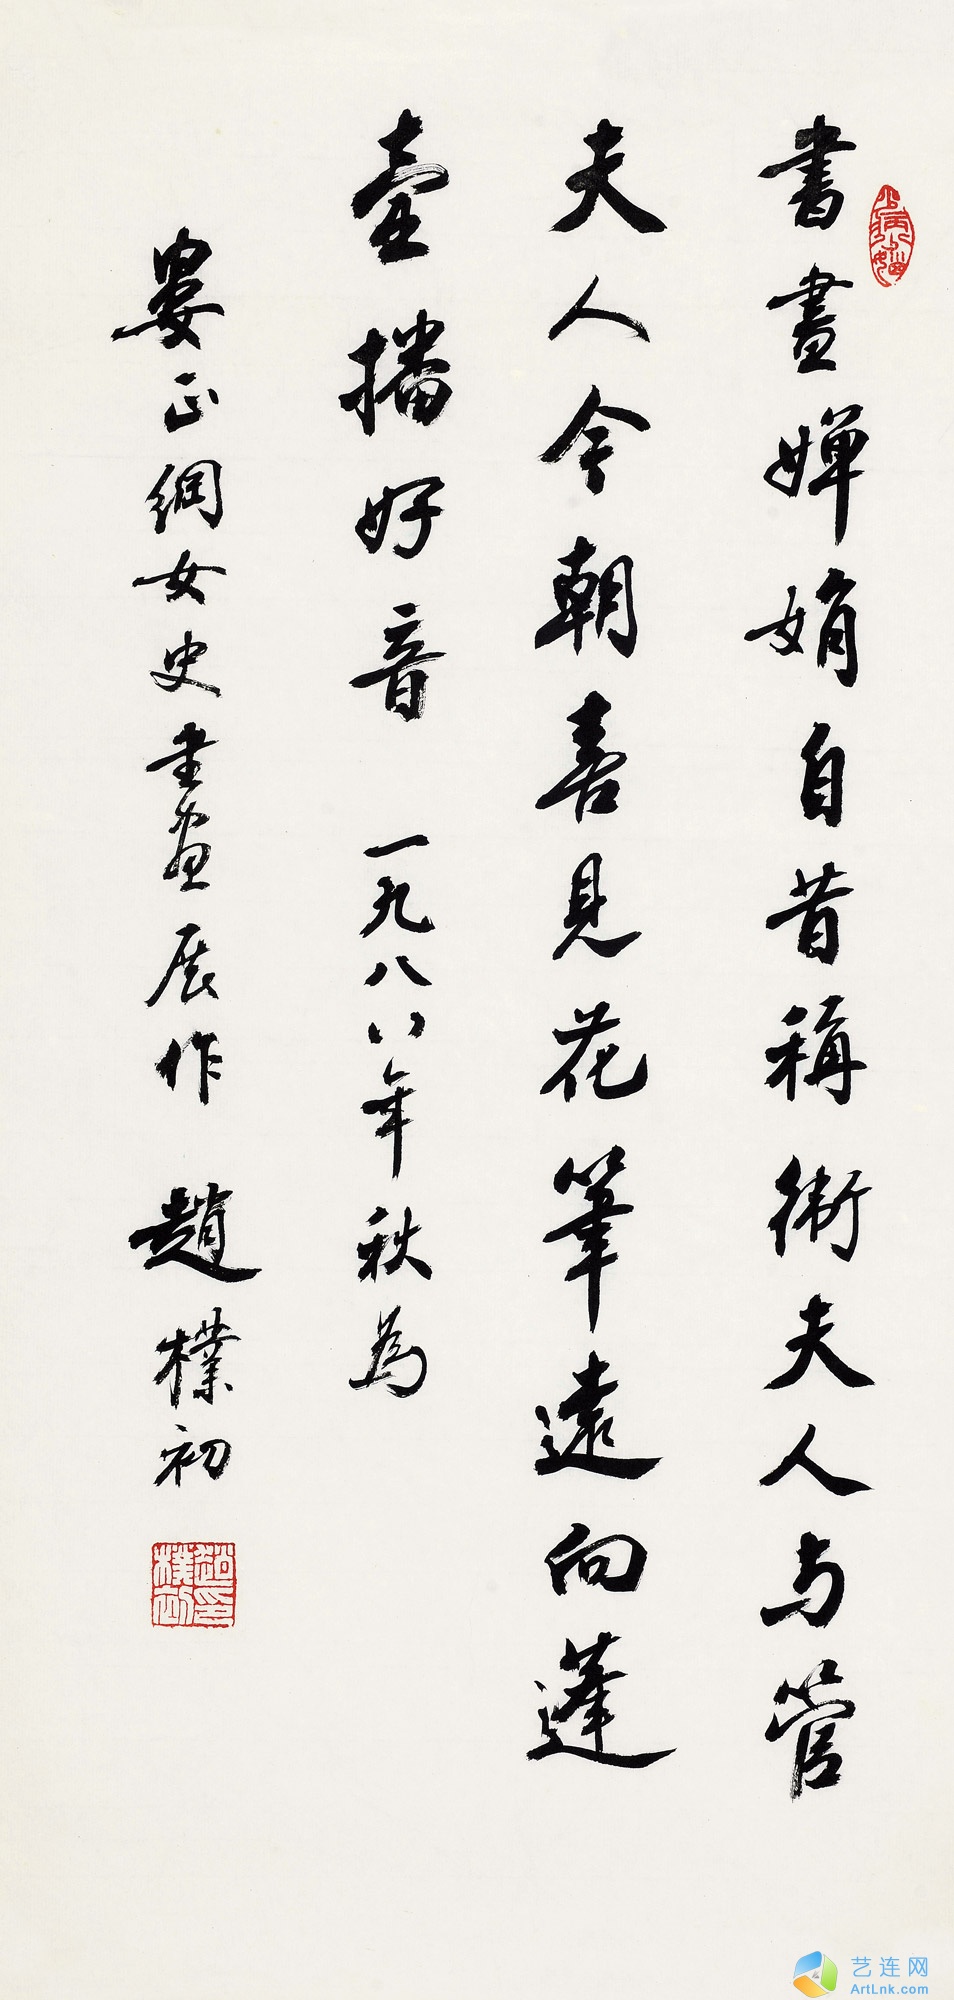 書畫嬋娟自昔稱衛夫人与管
夫人今朝喜見花筆遠向蓬
壺播好音 一九八八年秋為
婁正綱女史書画展作 趙樸初
趙樸初印
艺连网
ArtLnk.com